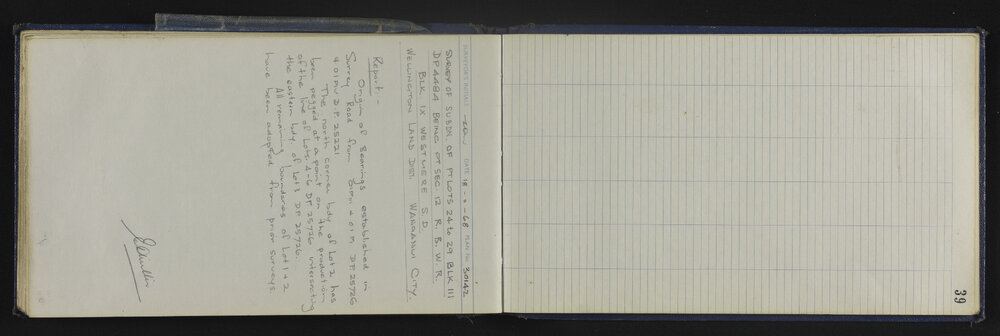 SURVEYOR'S INITIALS DATE 18 - - 68 PLAN No. 30142
SURVEY OF SUBDN. OF PT. LOTS 24 to 29 BLK III
DP. 4484 BEING PT SEC. 12 R. B. W. R.
BLK IX WESTMERE S.D.
WELLINGTON LAND DIST. WANGANUI CITY.
Report :-
Origin of Bearings established in
Surrey Road from O.I.M. 4 O.I.M. D.P. 25726
4 O.I.M.V D.P. 25221
The north corner bdy. of Lot 2 has
been pegged at a point on the production
of the line of Lots 4-6 D.P. 25726 intersecting
the eastern bdy. of Lot 3 D.P. 25726.
All remaining boundaries of Lot 1 + 2
have been adopted from prior surveys.
39